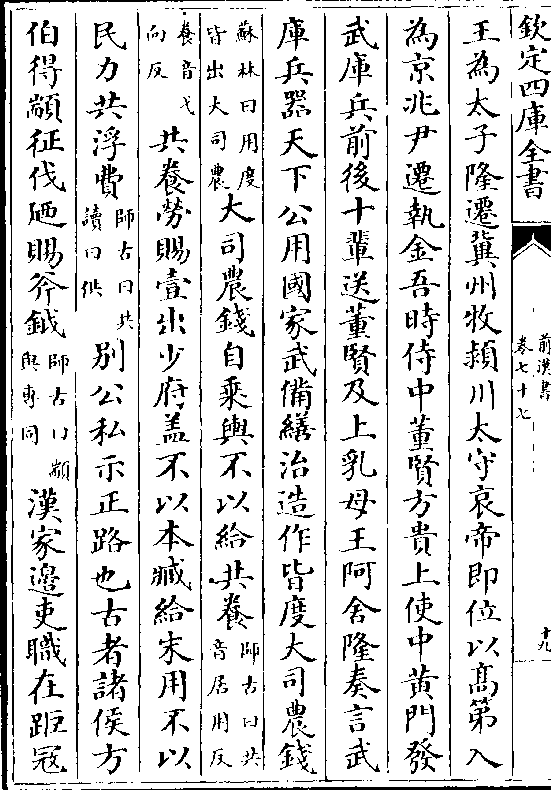 欽定四庫全書
前漢書
卷七十七
十九
王為太子隆遷冀州牧潁川太守哀帝即位以髙第入
為京兆尹遷執金吾時侍中董賢方貴上使中黄門發
武庫兵前後十輩送董賢及上乳母王阿舍隆奏言武
庫兵器天下公用國家武備繕治造作皆度大司農錢
蘇林曰用度
皆出大司農
大司農錢自乘輿不以給共養
師古曰共
音居用反
養音弋
向反
共養勞賜壹出少府盖不以本臧給末用不以
民力共浮費
師古曰共
讀曰供
別公私示正路也古者諸侯方
伯得顓征伐廼賜斧鉞
師古曰顓
與專同
漢家邉吏職在距冦